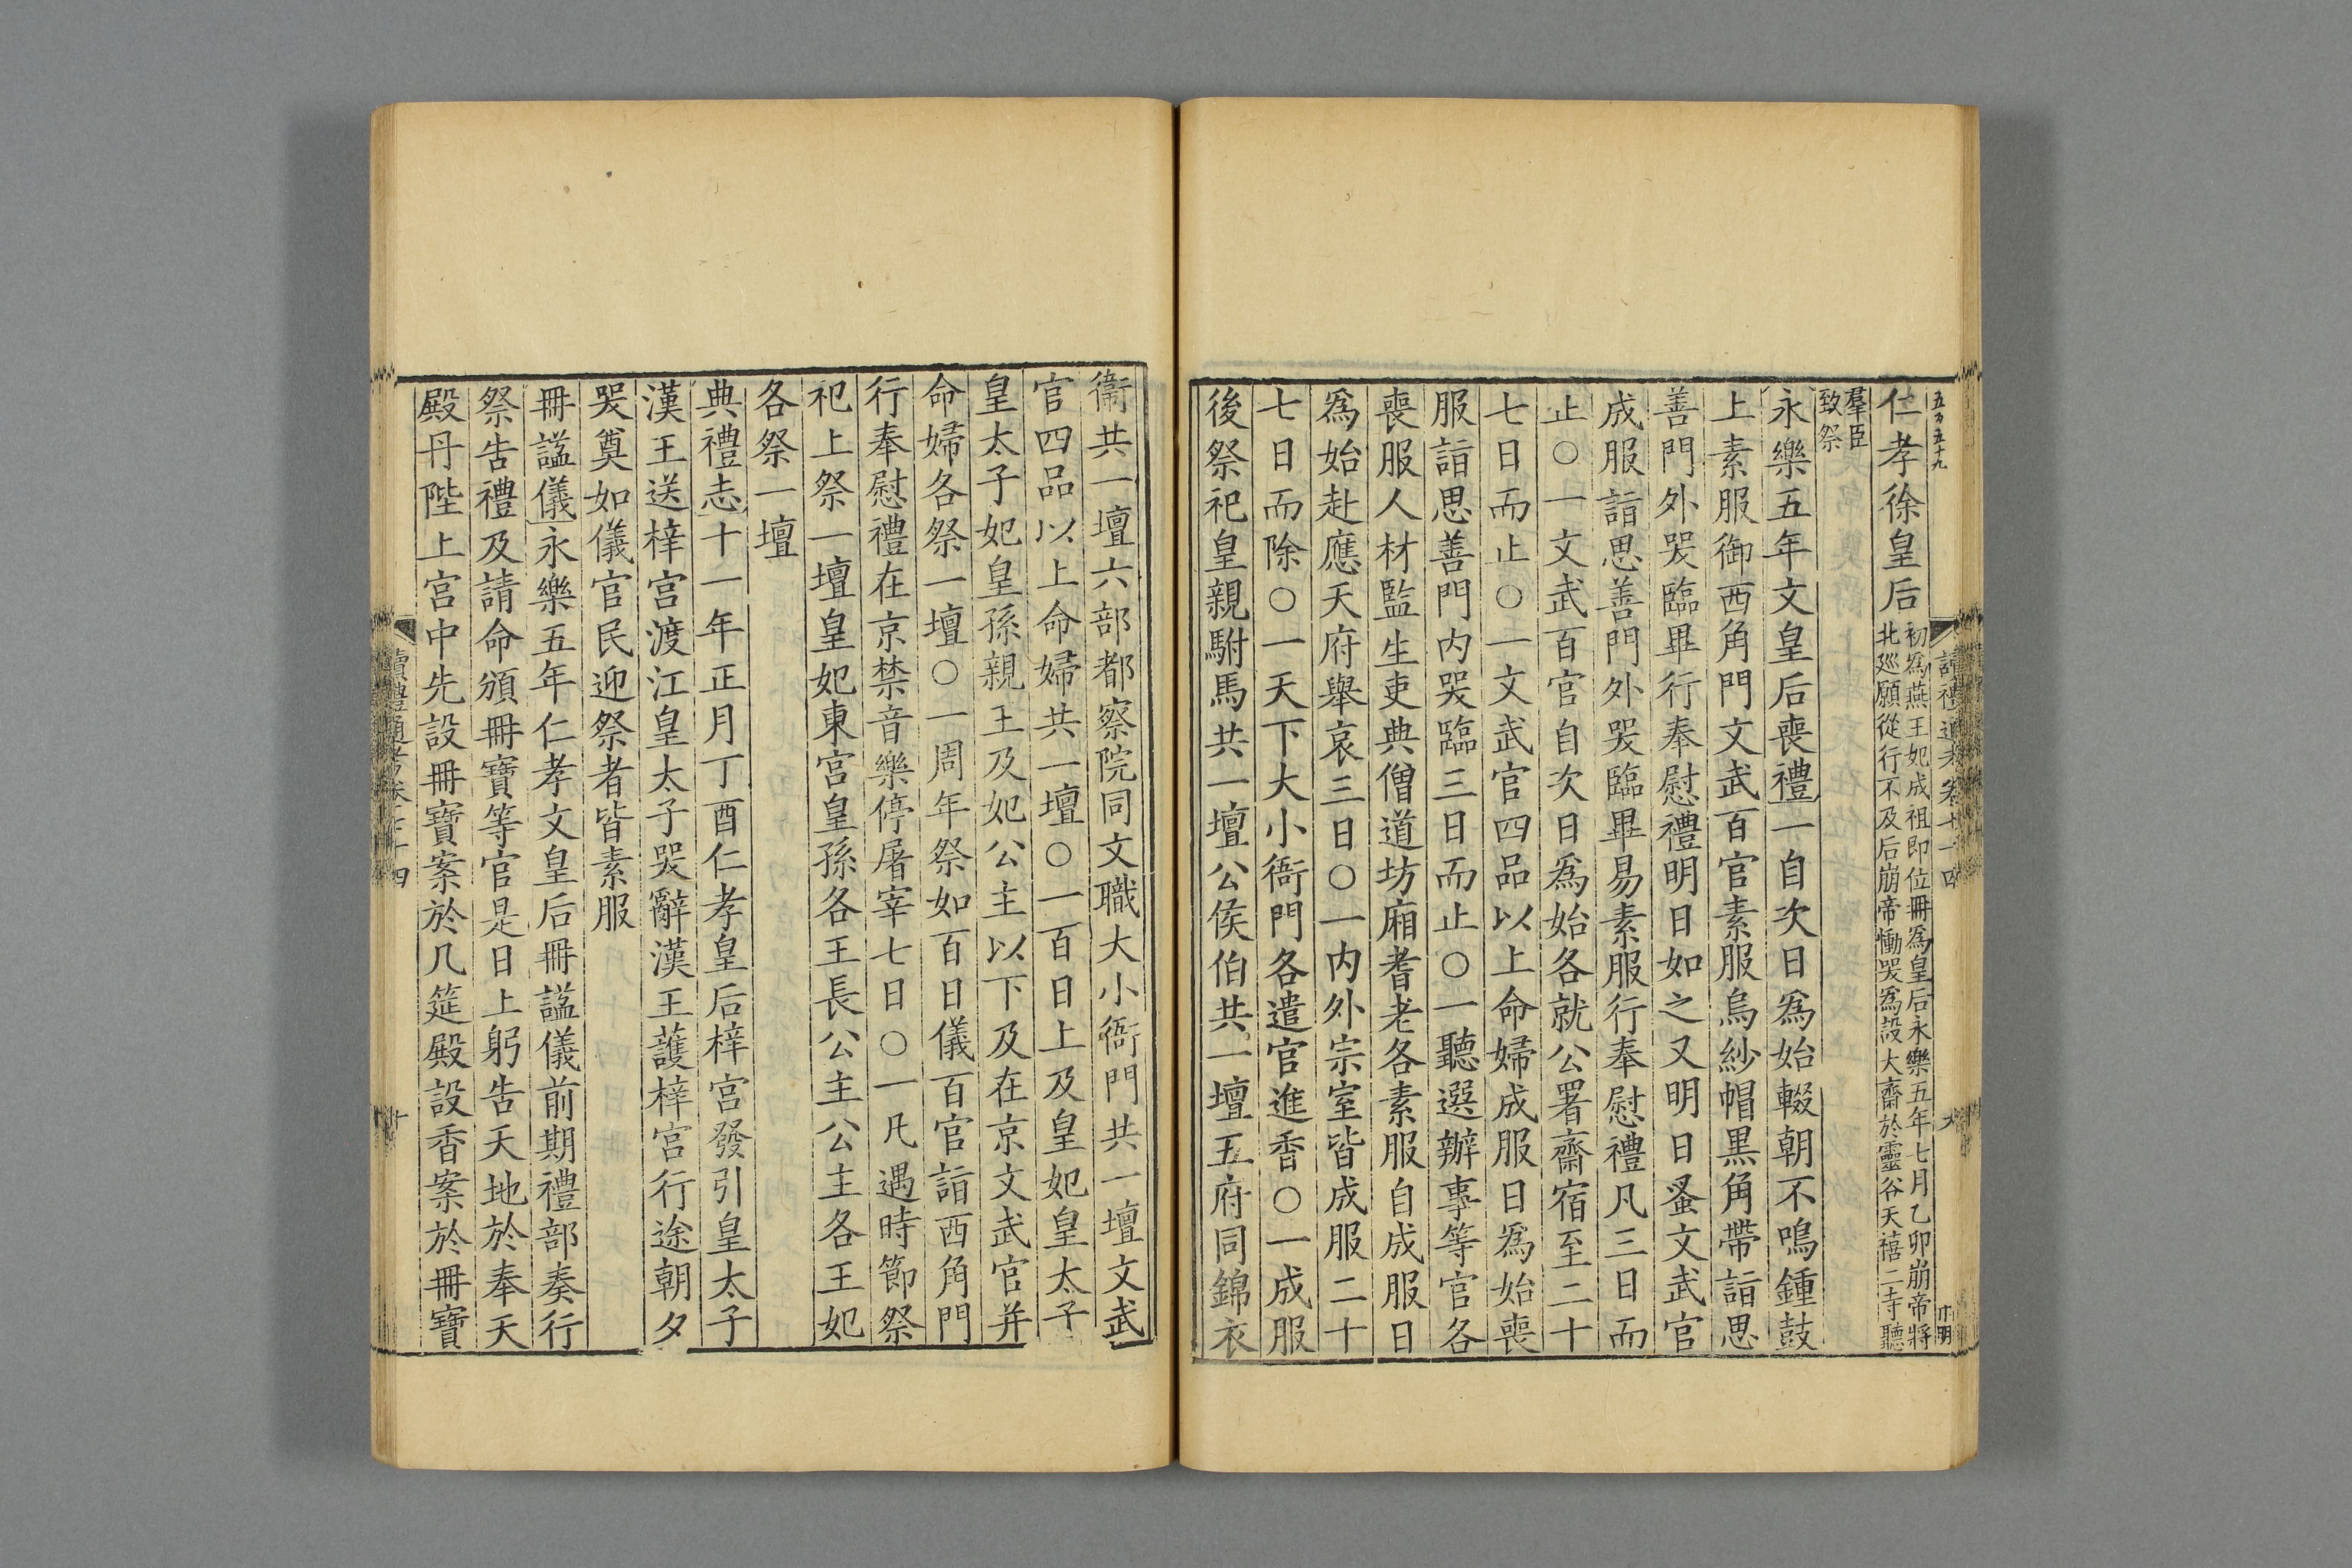 五百五十九
仁孝徐皇后初爲燕王妃成祖即位冊爲皇后永樂五年七月乙卯崩帝將
北廵願從行不及后崩帝慟哭爲設大齋於靈谷天禧二寺聽
羣臣
致祭
永樂五年文皇后喪禮一自次日爲始輟朝不鳴鍾鼓
上素服御西角門文武百官素服烏紗帽黒角帶詣思
善門外哭臨畢行奉慰禮明日如之又明日蚤文武官
成服詣思善門外哭臨畢易素服行奉慰禮凡三日而
止○一文武百官自次日爲始各就公署齋宿至二十
七日而止○一文武官四品以上命婦成服日爲始喪
服詣思善門内哭臨三日而止○一聽選辦事等官各
喪服人材監生吏典僧道坊廂耆老各素服自成服日
爲始赴應天府舉哀三日○一内外宗室皆成服二十
七日而除○一天下大小衙門各遣官進香○一成服
後祭祀皇親駙馬共一壇公侯伯共一壇五府同錦衣
衞共一壇六部都察院同文職大小衙門共一壇文武
官四品以上命婦共一壇○一百日上及皇妃皇太子
皇太子妃皇孫親王及妃公主以下及在京文武官并
命婦各祭一壇○一周年祭如百日儀百官詣西角門
行奉慰禮在京禁音樂停屠宰七日○一凡遇時節祭
祀上祭一壇皇妃東宮皇孫各王長公主公主各王妃
各祭一壇
典禮志十一年正月丁酉仁孝皇后梓宮發引皇太子
漢王送梓宮渡江皇太子哭辭漢王護梓宮行途朝夕
哭奠如儀官民迎祭者皆素服
冊謚儀永樂五年仁孝文皇后冊謚儀前期禮部奏行
祭告禮及請命頒冊寶等官是日上躬告天地於奉天
殿丹陛上宮中先設冊寶案於几筵殿設香案於冊寶
讀禮通考卷七十四
十